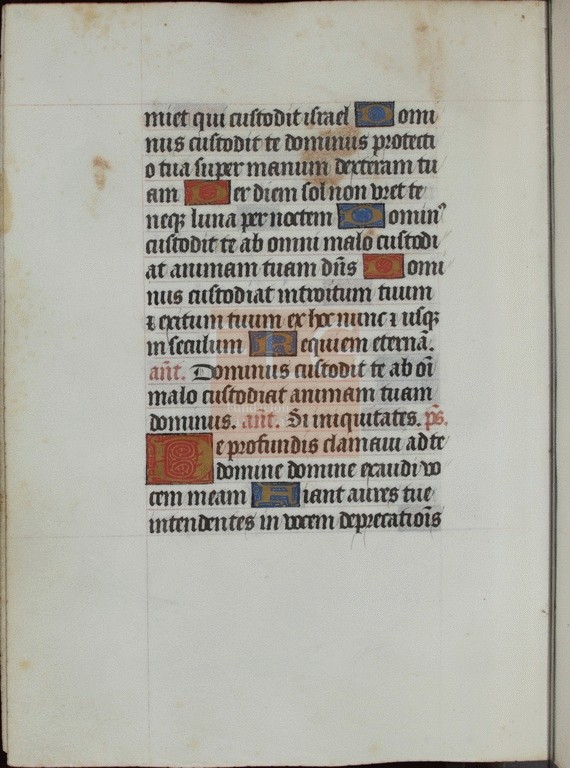 miet qui custodit israel Domi
nus custodit te dominus protecti
o tua super manum dexteram tu
am Per diem sol non vret te
neqꝫ luna per noctem Dominꝰ
custodit te ab omni malo custodi
at animam tuam dñs Domi
nus custodiat introitum tuum
⁊ exitum tuum ex hoc nunc ⁊ usqꝫ
in seculum Requiem eternã.
añt. Dominus custodit te ab oĩ
malo custodiat animam tuam
dominus. añt. Si iniquitates. ps̃.
De profundis clamaui ad te
domine domine exaudi vo
cem meam Fiant aures tue
intendentes in vocem deprecatiois̃